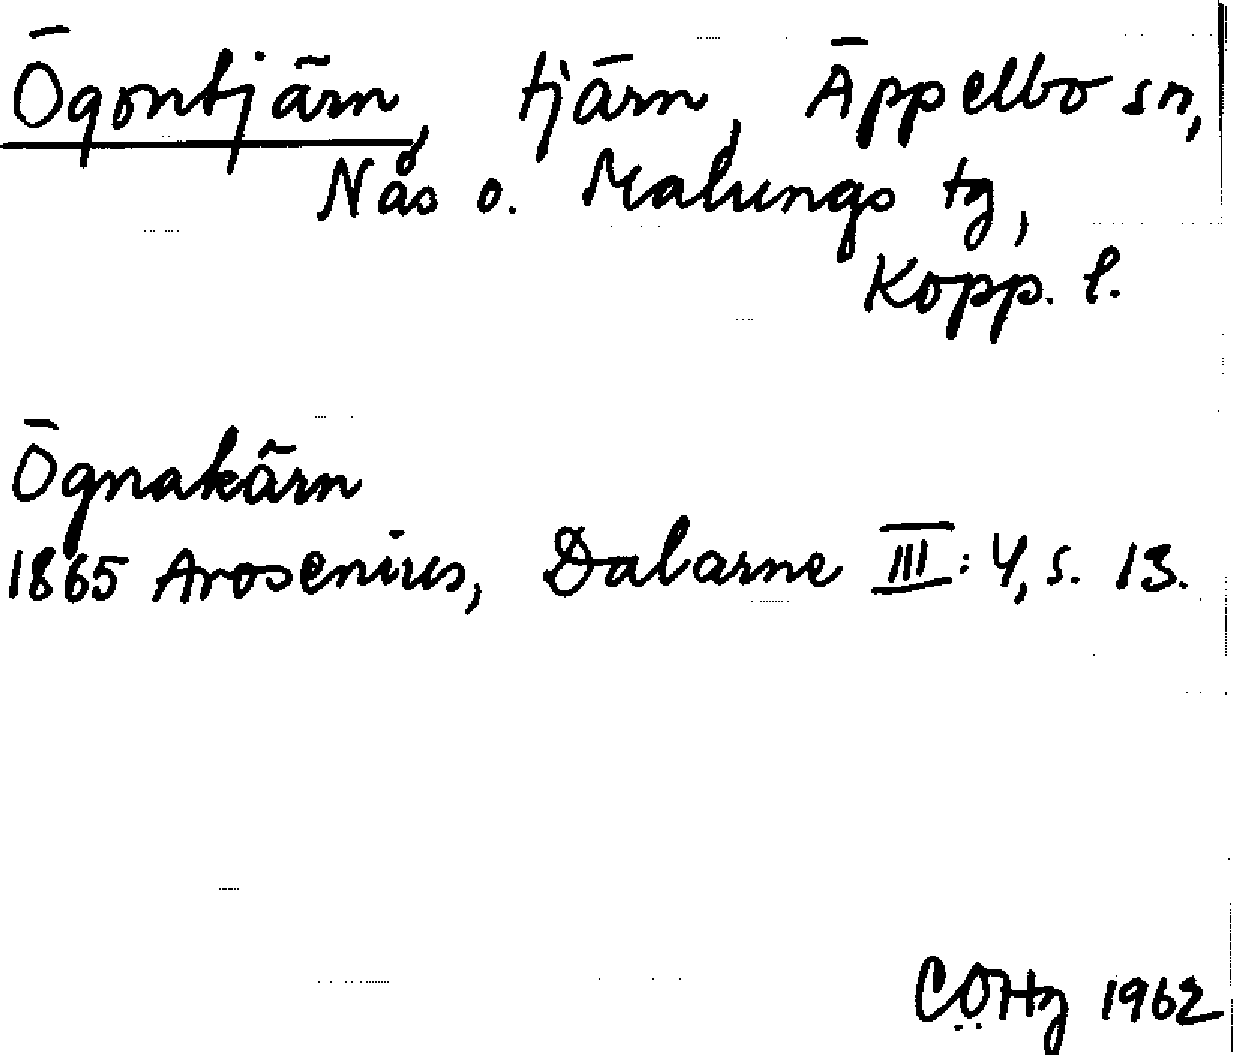 Ögontjärn, tjärn, Äppelbo sn,
Nås o. Malungs tg,
Kopp. l.
Ögnakärn
1865 Arosenius, Dalarne III: 4, s. 13.
CÖHg 1962